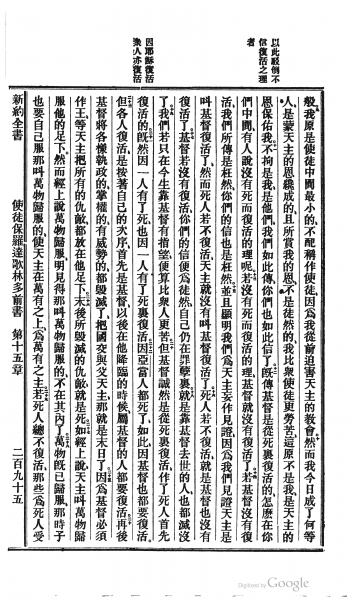 以此駁倒不
信復活之理
者
因耶穌復活
衆人亦復活
般我原是使徒中間最小的不配稱作使徒因爲我從前迫害天主的教會然而我今日成了何等
人是蒙天主的恩纔成的且所賞我的恩不是徒然的我比衆使徒更勞苦這原不是我是天主的
恩保佑我不拘是我是他們我們如此傳你們也如此信了旣傳基督是從死裏復活的怎麽在你
們中間有人說沒有死而復活的理呢若沒有死而復活的理基督就沒有復活了基督若沒有復
活我們所傳是枉然你們的信也是枉然並且顯明我們爲天主妄作見證因爲我們見證天主是
叫基督復活了然而死人若不復活天主就沒有叫基督復活了死人若不復活就是基督也沒有
復活了基督若沒有復活你們的信便爲徒然自己仍在罪孽裏就是靠基督去世的人也都滅沒
了我們若只在今生靠基督有指望便算比衆人更苦但基督誠然是從死裏復活作了死人首先
復活的旣然因一人有了死也因一人有了死裏復活因亞當人都死了如此因基督也都要復活
但各人復活是按著自己的次序首先是基督以後在他降臨的時候屬基督的人都要復活再後
基督將各樣執政的掌權的有威勢的都毀滅了把國交與父天主那就是末日了因爲基督必須
作王等天主把所有的仇敵都放在他足下末後所毀滅的仇敵就是死如經上說天主叫萬物歸
服他的足下然而經上說萬物歸服明見得那叫萬物歸服的不在其內了萬物旣已歸服那時子
也要自己歸服那叫萬物歸服的使天主在萬有之上爲萬有之主若死人總不復活那些爲死人受
新約全書 使徒保羅達歌林多前書 第十五章 二百九十五
Digitized by Google